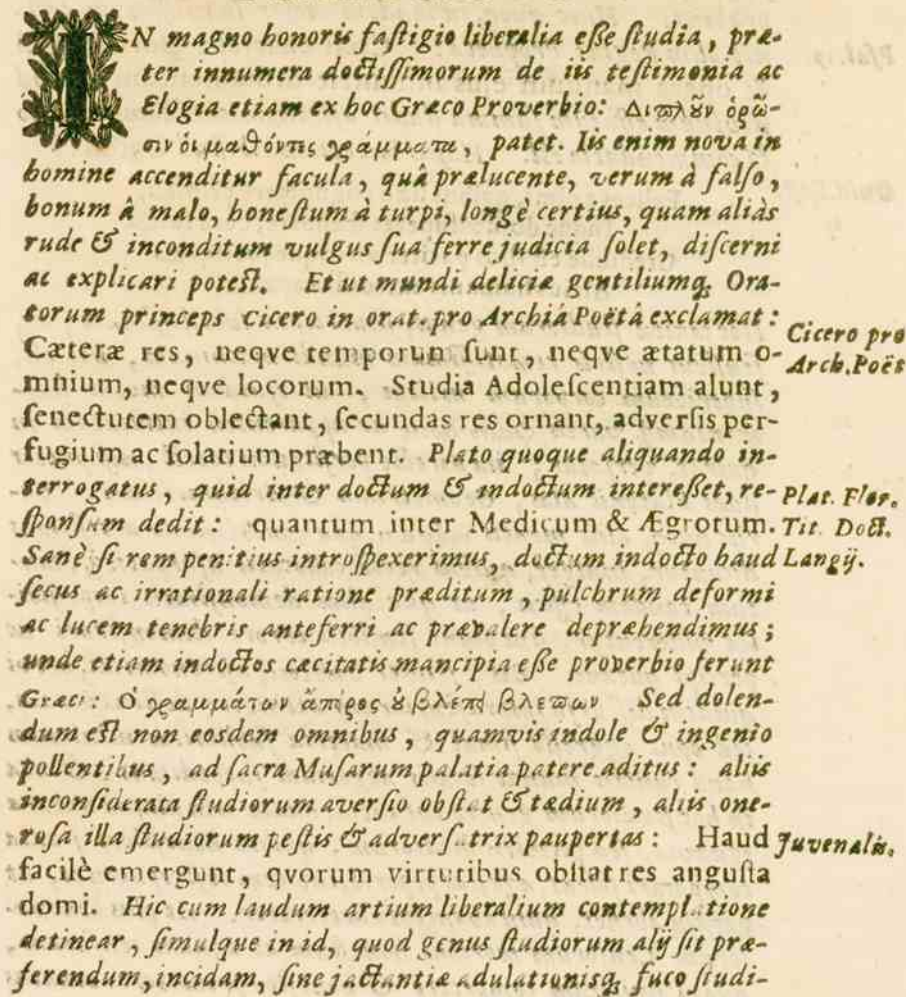 IN magno honoris faſtigio liberalia eſſe ſtudia, præ-
ter innumera doctiſſimorum de iis teſtimonia ac
Elogia etiam ex hoc Græco Proverbio: Διπλοῦν ὁρῶ-
σιν ὁι μαθόντες γράμματα, patet. Iis enim nova in
homine accenditur facula, quâ prælucente, verum à falſo,
bonum â malo, honeſtum à turpi, longè certius, quam aliàs
rude & inconditum vulgus ſua ferre judicia ſolet, diſcerni
ac explicari poteſt. Et ut mundi deliciæ gentiliumq; Ora-
torum princeps Cicero in orat. pro Archiâ Poëtâ exclamat:
Cicero pro
Cæteræ res, neqve temporun ſunt, neqve ætatum o-
Arch. Poët
mnium, neqve locorum. Studia Adoleſcentiam alunt,
ſenectutem oblectant, ſecundas res ornant, adverſis per-
fugium ac ſolatium præbent. Plato quoque aliquando in-
terrogatus, quid inter doctum & indoctum intereſſet, re-
Plat. Flor.
ſponſum dedit: quantum inter Medicum & Ægrotum.
Tit. Doct.
Sanè ſi rem penitius introſpexerimus, doctum indocto haud
Langij.
ſecus ac irrationali ratione præditum, pulchrum deformi
ac lucem tenebris anteferri ac prævalere depræhendimus;
unde etiam indoctos cæcitatis mancipia eſſe proverbio ferunt
Græci: Ὁ γραμμάτων ἄπειρος ȣ βλέπει βλεπων Sed dolen-
dum eſt non eosdem omnibus, quamvis indole & ingenio
pollentibus, ad ſacra Muſarum palatia patere aditus: aliis
inconſiderata ſtudiorum averſio obſtat & tædium, aliis one-
roſa illa ſtudiorum peſtis & adverſatrix paupertas: Haud
Juvenalis.
facilè emergunt, qvorum virtutibus obſtat res anguſta
domi. Hic cum laudum artium liberalium contemplatione
detinear, ſimulque in id, quod genus ſtudiorum alij ſit præ-
ferendum, incidam, ſine jactantiæ adulationisq; fuco ſtudi-